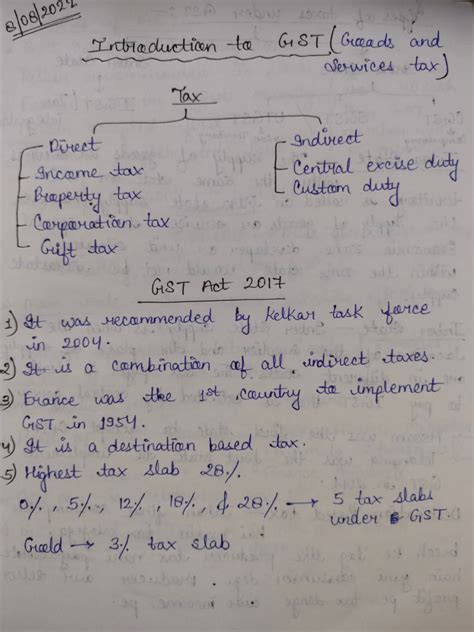 8/08/2022
Introduction to GST (Goods and
Services tax)
Tax
Direct
Income tax
Property tax
Corporation tax
Gift tax
Indirect
Central excise duty
Custom duty
GST Act 2017
1) It was recommended by Kelkar task force
in 2004.
2) It is a combination of all indirect taxes.
3) France was the 1st country to implement
GST in 1954.
4) It is a destination based tax.
5) Highest tax slab 28%
0%, 5%, 12%, 18%, & 28% → 5 tax slabs
under GST.
Goold → 3% tax slab